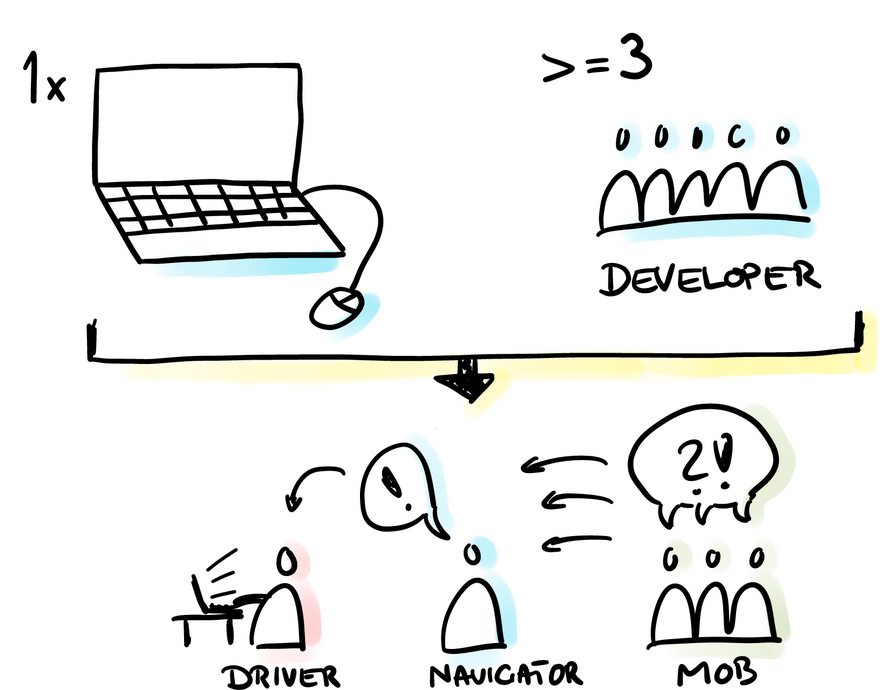 1x
>=3
DEVELOPER
!
?!
DRIVER
NAVIGATOR
MOB